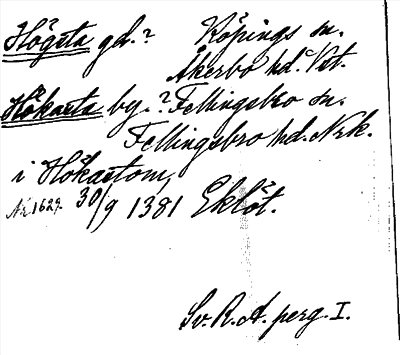 Högsta gd.? Köpings sn.
Åkerbo hd. Vst.
Hökasta by.? Fellingsbro sn.
Fellingsbro hd. Nrk.
i Hökastom,
Nr. 1629. 30/9 1381 Eklöt.
Sv. R. A. perg. I.